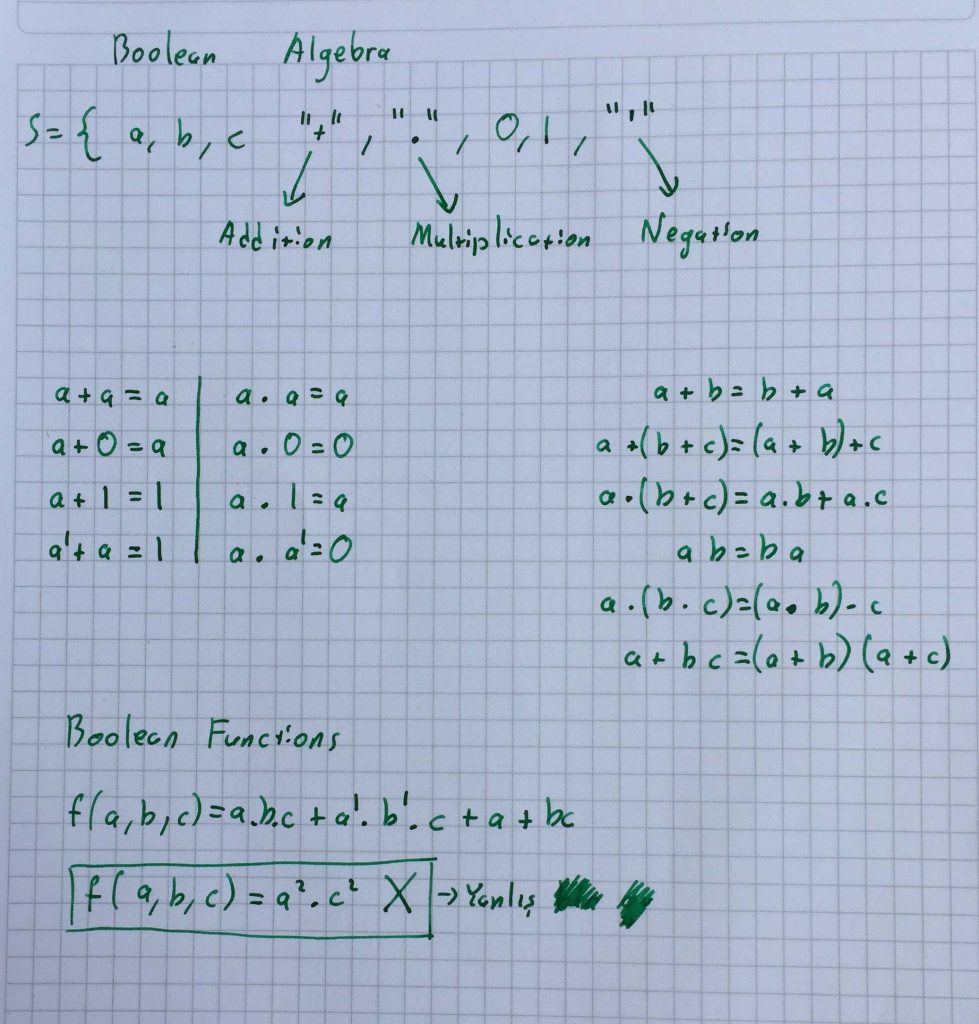 Boolean Algebra
S = { a, b, c "+" , "." , 0, 1 , "'"
Addition Multiplication Negation
a + a = a
a + 0 = a
a + 1 = 1
a' + a = 1
a . a = a
a . 0 = 0
a . 1 = a
a . a' = 0
a + b = b + a
a + (b + c) = (a + b) + c
a . (b + c) = a.b + a.c
a b = b a
a . (b . c) = (a . b) . c
a + b c = (a + b) (a + c)
Boolean Functions
f(a, b, c) = a.b.c + a' . b' . c + a + bc
f(a, b, c) = a² . c² X → Yanlış